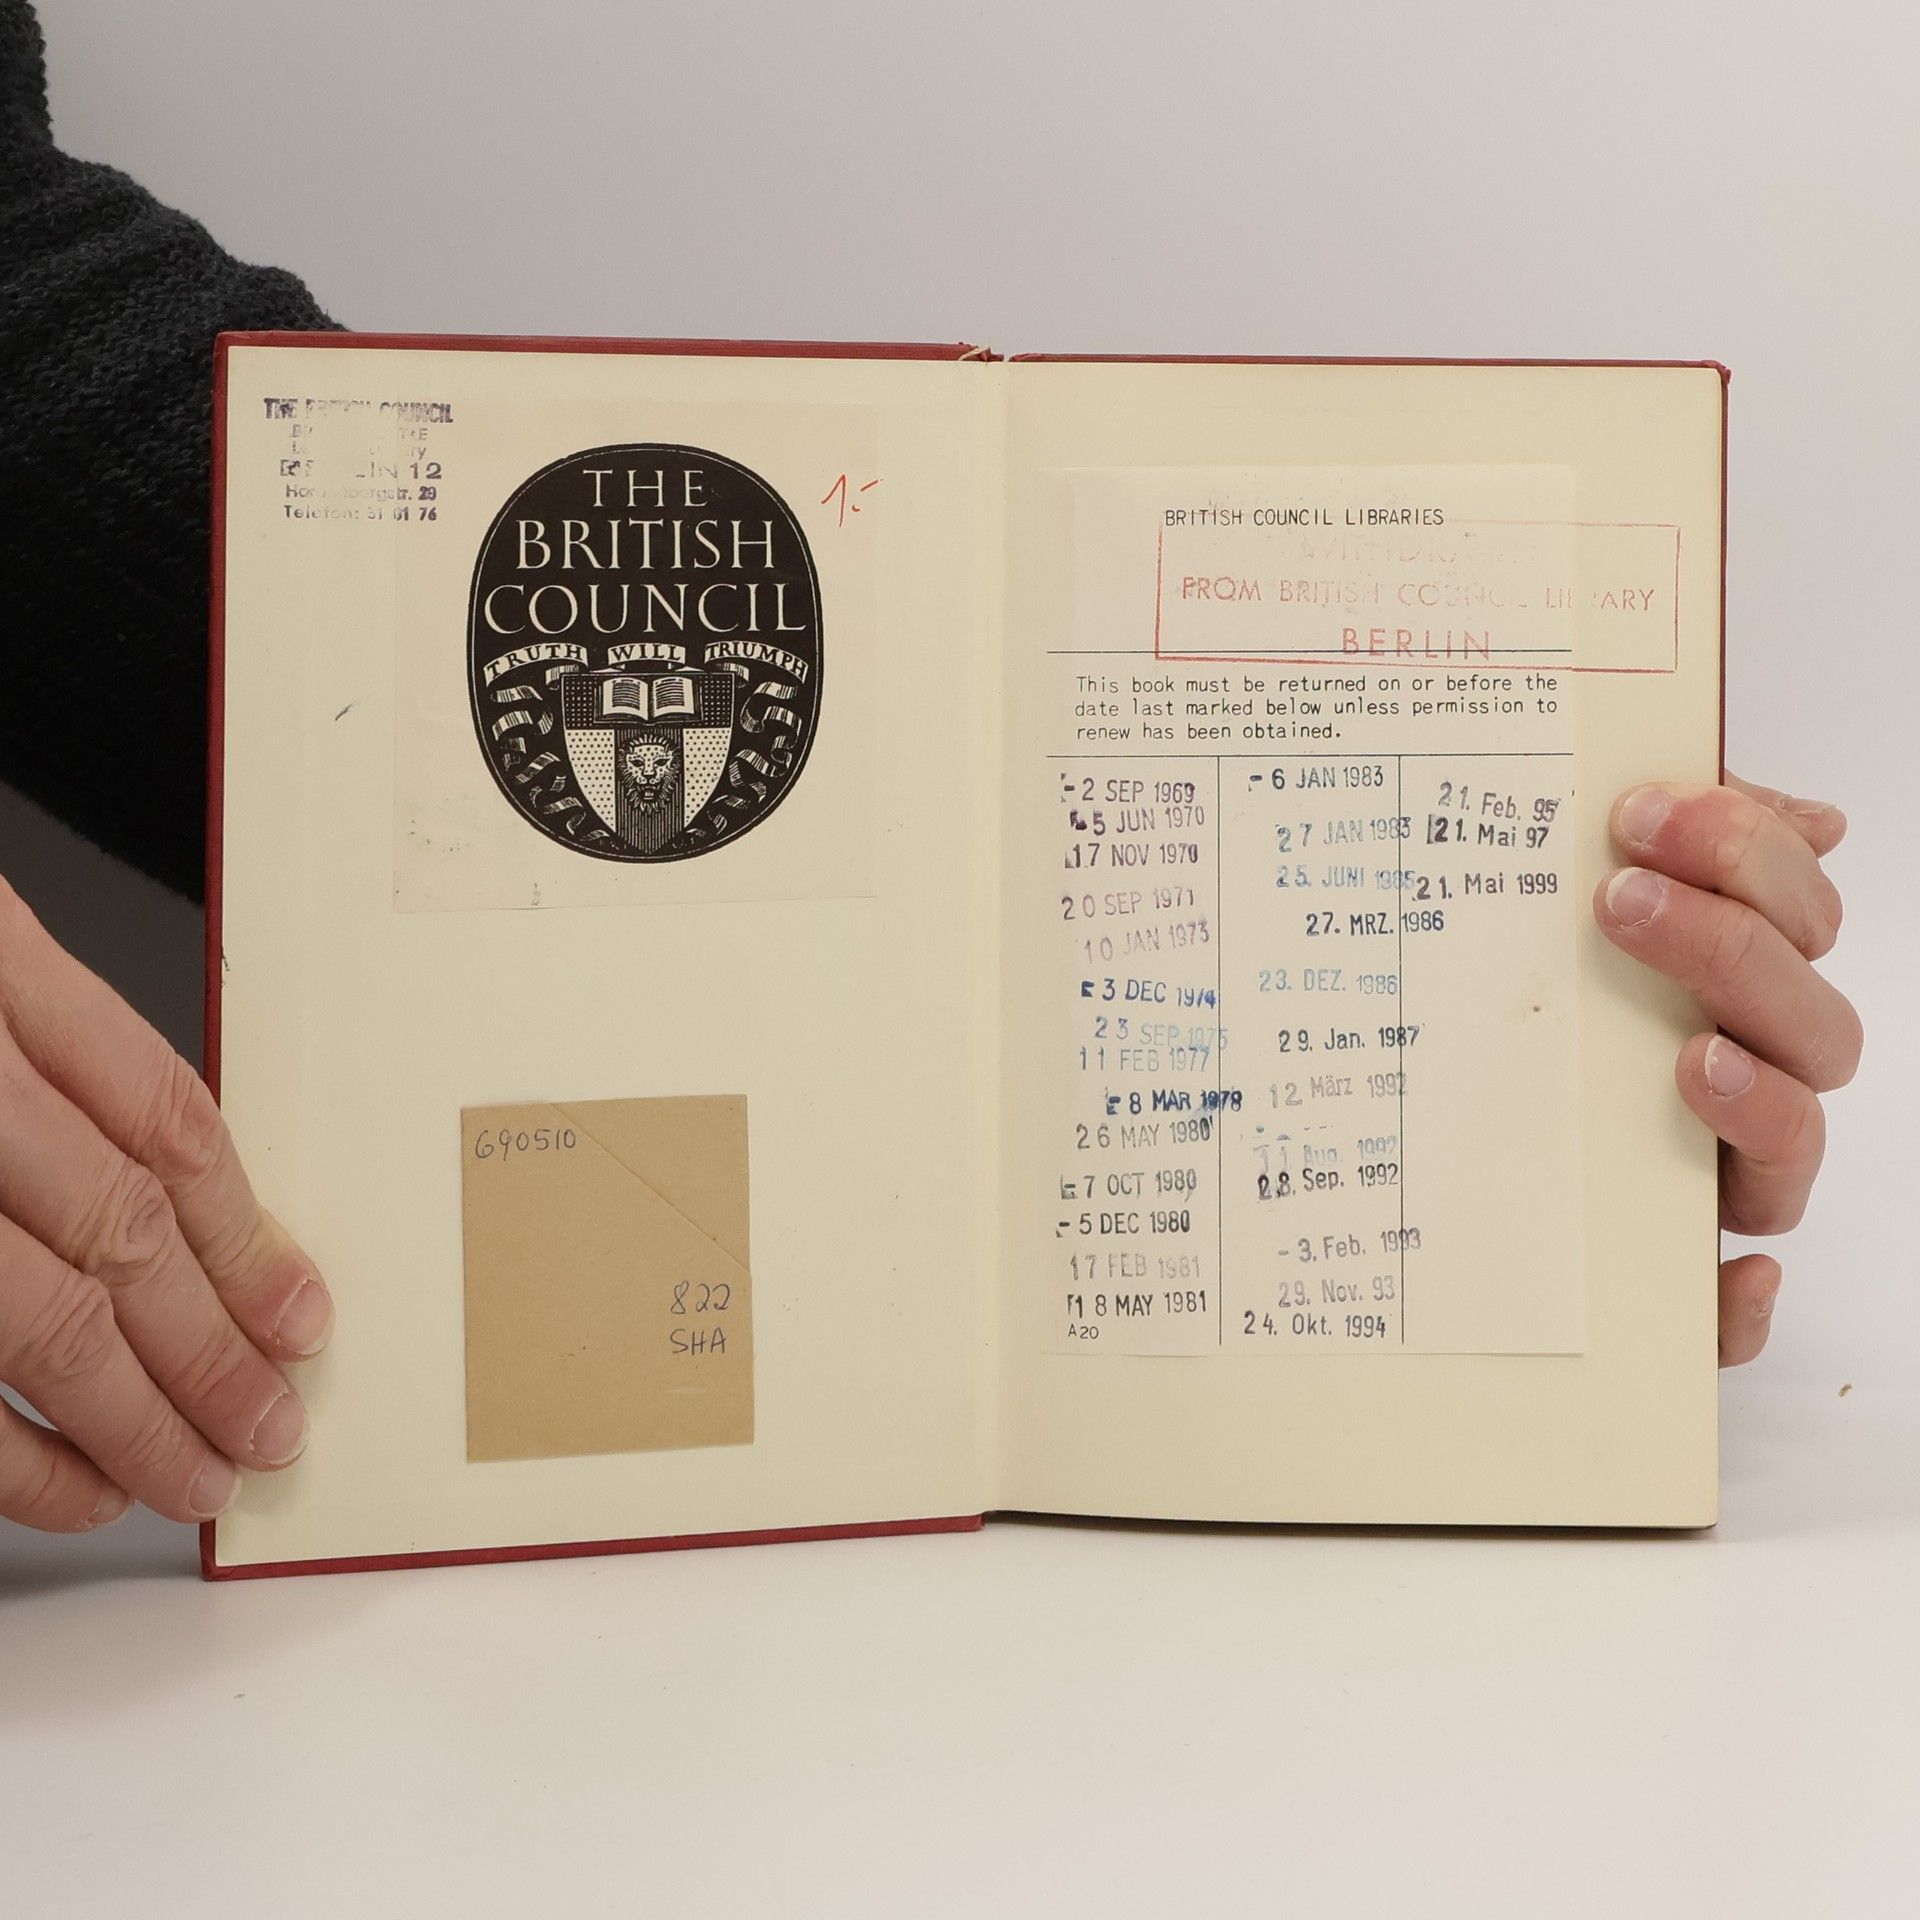 THE BRITISH COUNCIL
12
Telefon: 31 01 76
THE
BRITISH
COUNCIL
TRUTH WILL TRIUMPH
1.-
690510
822
SHA
BRITISH COUNCIL LIBRARIES
FROM BRITISH COUNCIL LIBRARY
BERLIN
This book must be returned on or before the
date last marked below unless permission to
renew has been obtained.
- 2 SEP 1969
5 JUN 1970
17 NOV 1970
20 SEP 1971
10 JAN 1973
3 DEC 1974
23 SEP 1975
11 FEB 1977
8 MAR 1978
26 MAY 1980
- 7 OCT 1980
- 5 DEC 1980
17 FEB 1981
18 MAY 1981
A20
- 6 JAN 1983
27 JAN 1983
25. JUNI 1985
27. MRZ. 1986
23. DEZ. 1986
29. Jan. 1987
12. März 1992
11 Aug. 1992
28. Sep. 1992
- 3. Feb. 1993
29. Nov. 93
24. Okt. 1994
21. Feb. 95
21. Mai 97
21. Mai 1999